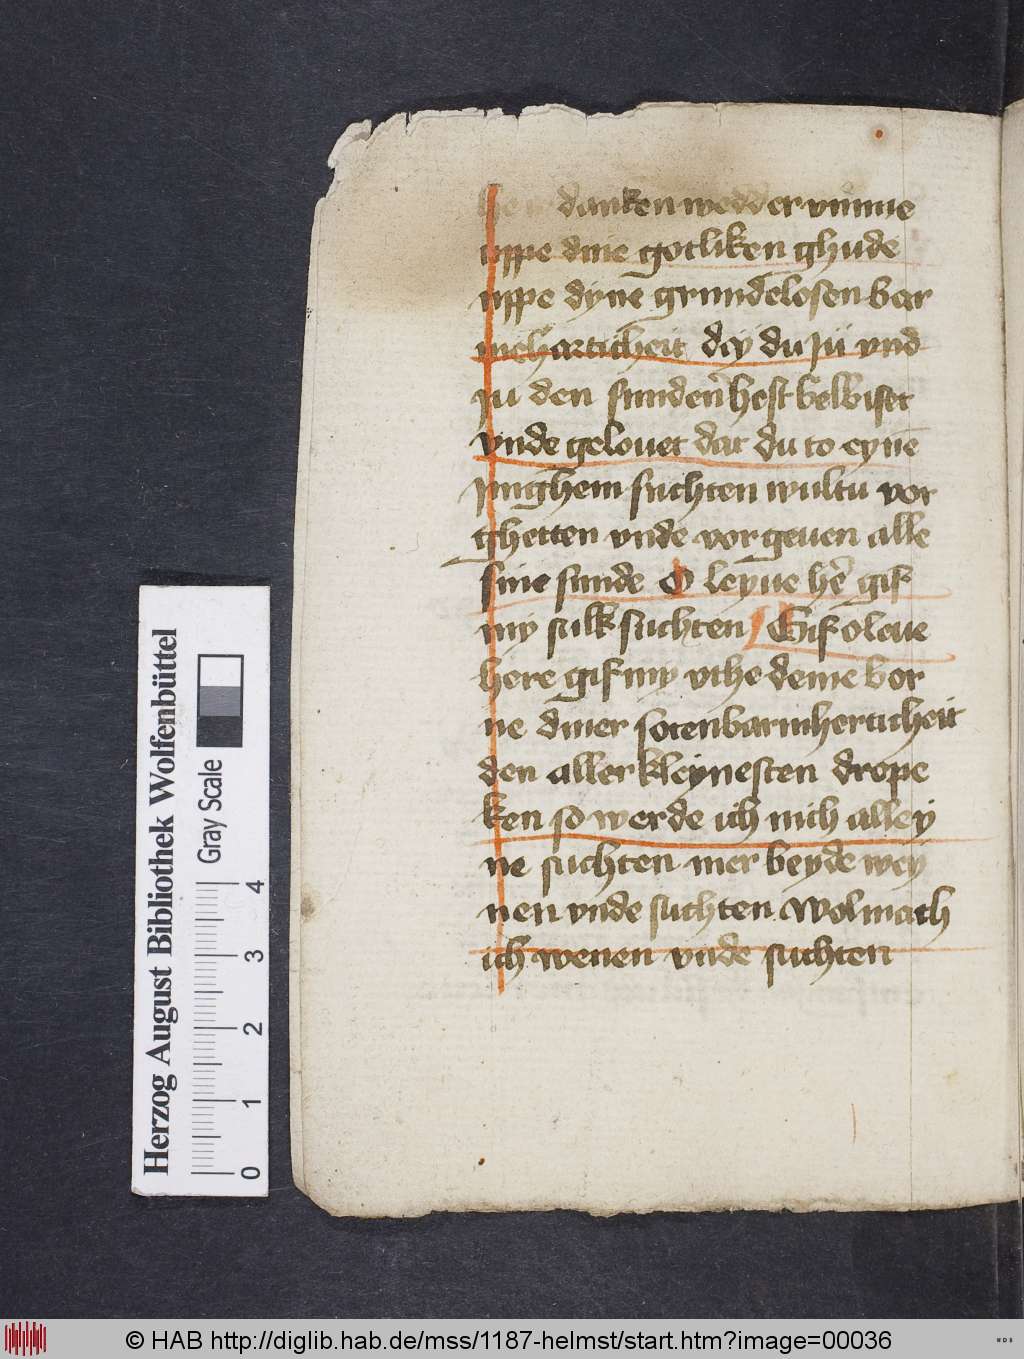 danken wedder vmme
uppe dine gotliken ghude
uppe dyne grundelosen bar
meharticheit dey du Ju vnd
Ju den sunderen hest bewiset
vnde gelouet dat du to eynē
Jnnghem suchten wultu vor
ghetten vnde vorgeuen alle
sine sunde O leyue hēr gif
my sulk suchten Gif o leue
here gif my vthe deme bor
ne diner soten barmherticheit
den aller kleynesten drope
ken so werde ich nich alley
ne suchten mer beyde wey
nen vnde suchten wol mach
ich wenen vnde suchten
Herzog August Bibliothek Wolfenbüttel
Gray Scale
0 1 2 3 4
© HAB http://diglib.hab.de/mss/1187-helmst/start.htm?image=00036